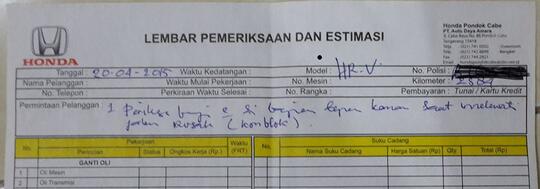 Honda Pondok Cabe
PT. Auto Daya Amara
Tangerang 15418
HONDA
LEMBAR PEMERIKSAAN DAN ESTIMASI
Tanggal : 20-04-2015 Waktu Kedatangan : Model : HR-V No. Polisi :
Nama Pelanggan : Waktu Mulai Pekerjaan : No. Mesin : Kilometer :
No. Telepon : Perkiraan Waktu Selesai : No. Rangka : Pembayaran : Tunai / Kartu Kredit
Permintaan Pelanggan : 1 Periksa bunyi di bagian depan kanan saat melewati
jalan rusak (konblok).
No. Pekerjaan Waktu (FRT) No. Suku Cadang
Perincian Status Ongkos Kerja (Rp.) Nama Suku Cadang Harga Satuan (Rp.) Qty Total (Rp.)
GANTI OLI
1 Oli Mesin
2 Oli Transmisi